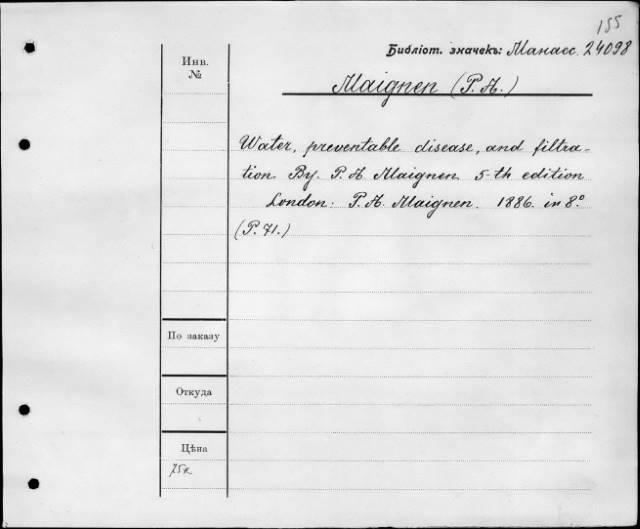 155
Библіот. значекъ: Манасс. 24098
Инв.
№
Maignen (P. A.)
Water, preventable disease, and filtra-
tion. By P. A. Maignen. 5-th edition
London: P. A. Maignen. 1886. in 8.º
(P. 71.)
По заказу
Откуда
Цѣна
75к